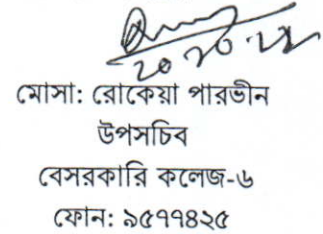 মোসা: রোকেয়া পারভীন
উপসচিব
বেসরকারি কলেজ-৬
ফোন: ৯৫৭৭৪২৫